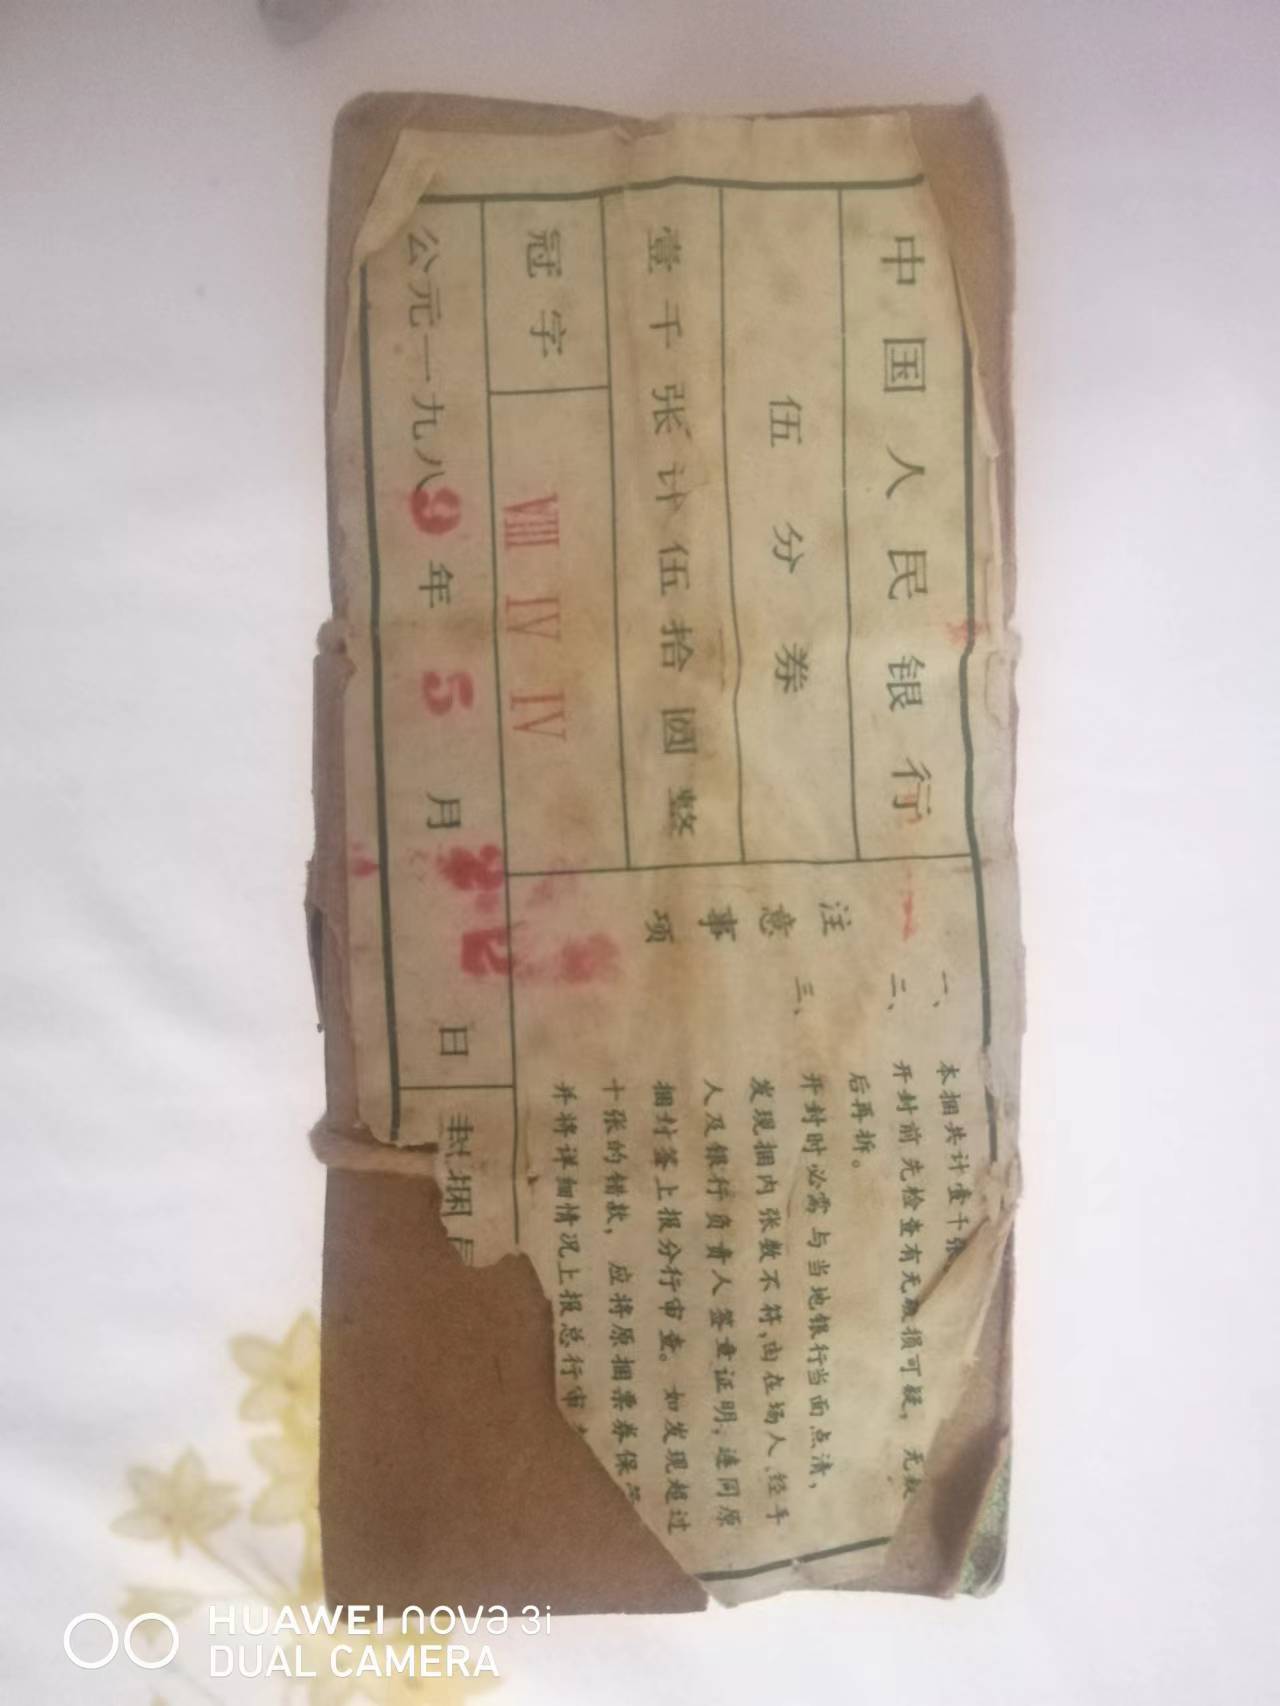 中国人民银行
伍分券
壹千张计伍拾圆整
冠字 VIII IV IV
公元一九八9年5月
日
封捆员
注意事项
一、本捆共计壹千张
二、开封前先检查有无破损可疑，无
后再拆。
三、开封时必需与当地银行当面点清，
发现捆内张数不符，由在场人、经手
人及银行负责人签章证明，连同原
捆封签上报分行审查。如发现超过
十张的错款，应将原捆票券保
并将详细情况上报总行审
HUAWEI nova 3i
DUAL CAMERA